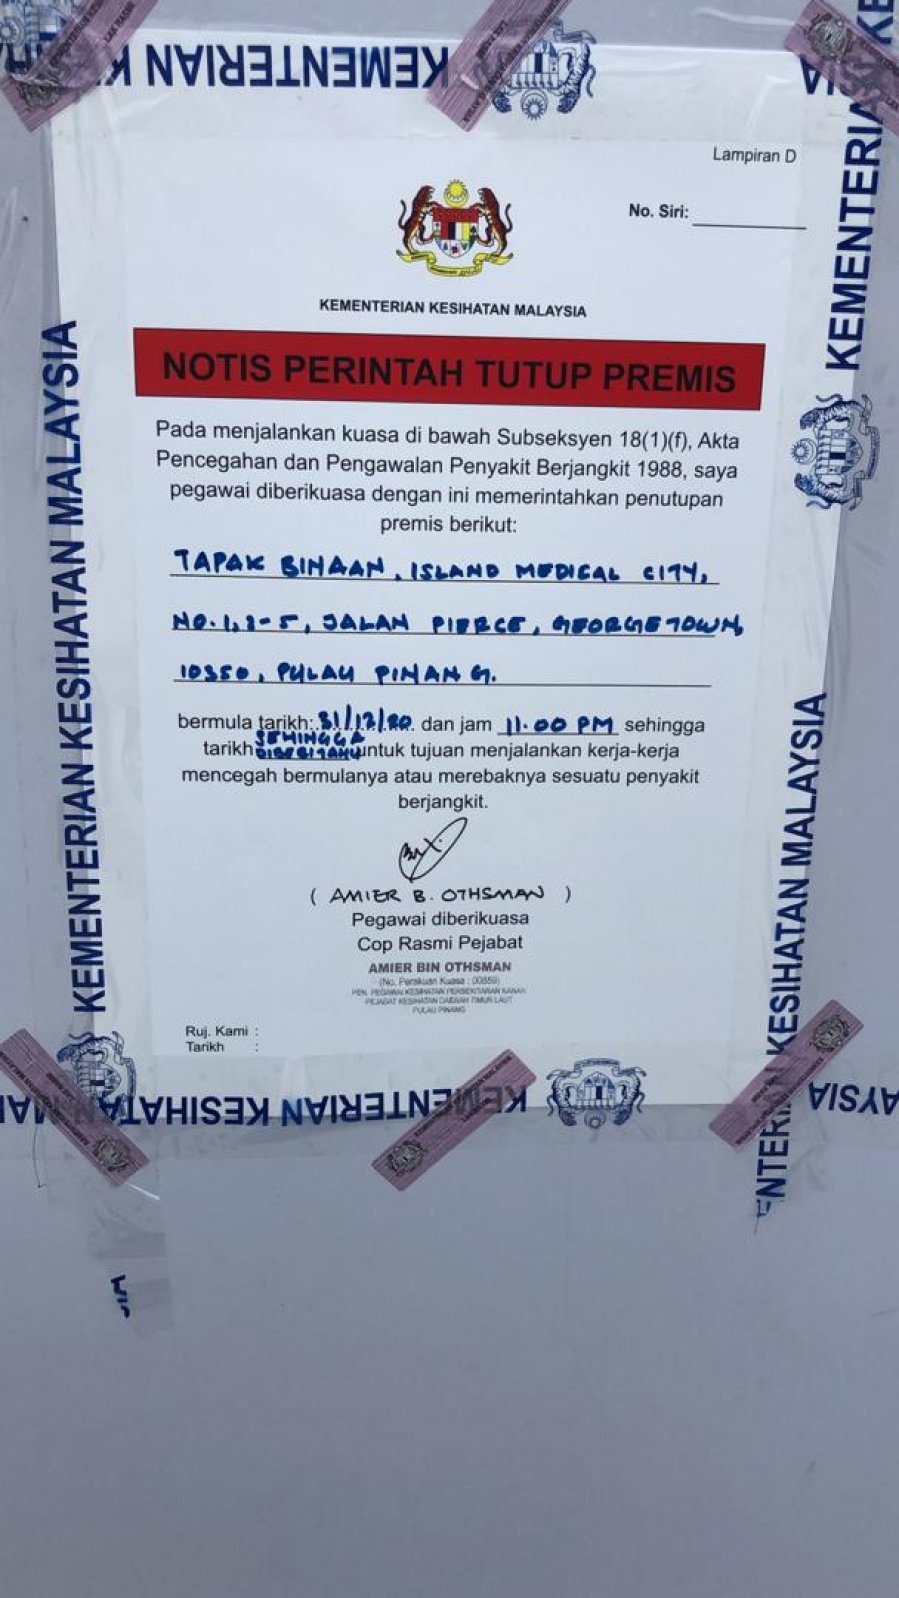 KEMENTERIAN K
Lampiran D
No. Siri:
KEMENTERIAN KESIHATAN MALAYSIA
NOTIS PERINTAH TUTUP PREMIS
Pada menjalankan kuasa di bawah Subseksyen 18(1)(f), Akta
Pencegahan dan Pengawalan Penyakit Berjangkit 1988, saya
pegawai diberikuasa dengan ini memerintahkan penutupan
premis berikut:
TAPAK BINAAN, ISLAND MEDICAL CITY,
NO. 1, 3-5, JALAN PIERCE, GEORGETOWN,
10350, PULAU PINANG.
bermula tarikh: 31/12/20 dan jam 11.00 PM sehingga
tarikh SEHINGGA DIBERITAHU untuk tujuan menjalankan kerja-kerja
mencegah bermulanya atau merebaknya sesuatu penyakit
berjangkit.
( AMIER B. OTHSMAN )
Pegawai diberikuasa
Cop Rasmi Pejabat
AMIER BIN OTHSMAN
(No. Perakuan Kuasa : 00859)
PEN. PEGAWAI KESIHATAN PERSEKITARAN KANAN
PEJABAT KESIHATAN DAERAH TIMUR LAUT
PULAU PINANG
Ruj. Kami :
Tarikh :
KEMENTERIAN KESIHATAN MALAYSIA
KEMENTERIAN
KEMENTERIAN KESIHATAN MALAYSIA
KEMENTERIAN KESIHATAN
AYSIA